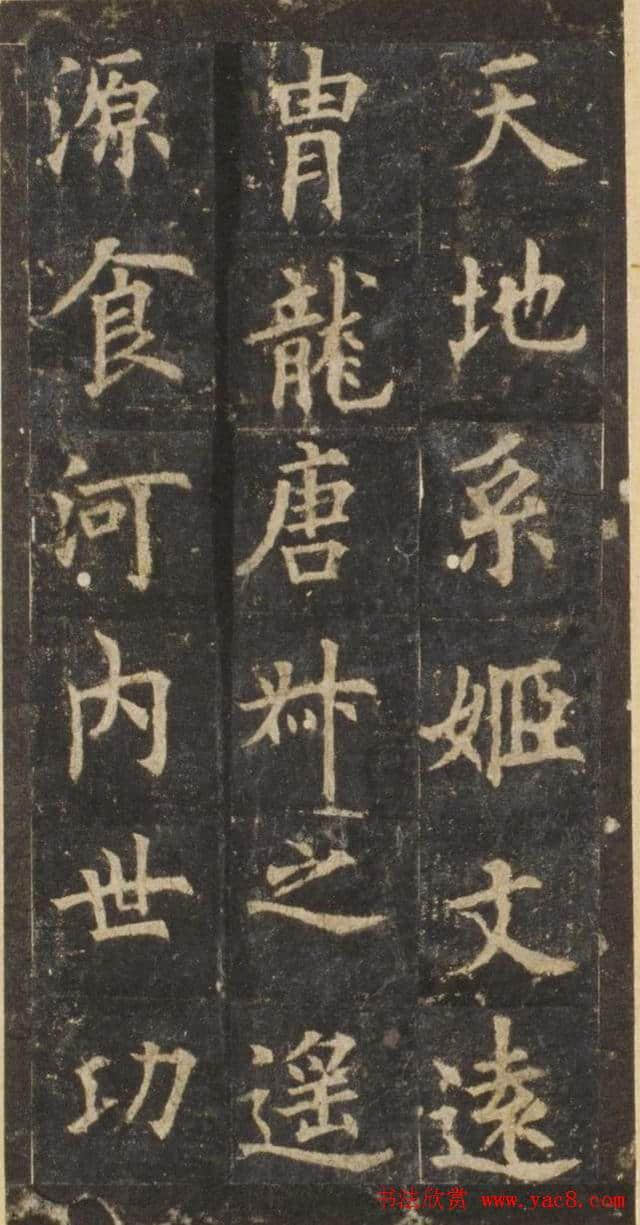 天地系姬文遠
胄龍唐叔之遥
源食河内世功
书法欣赏 www.yac8.com